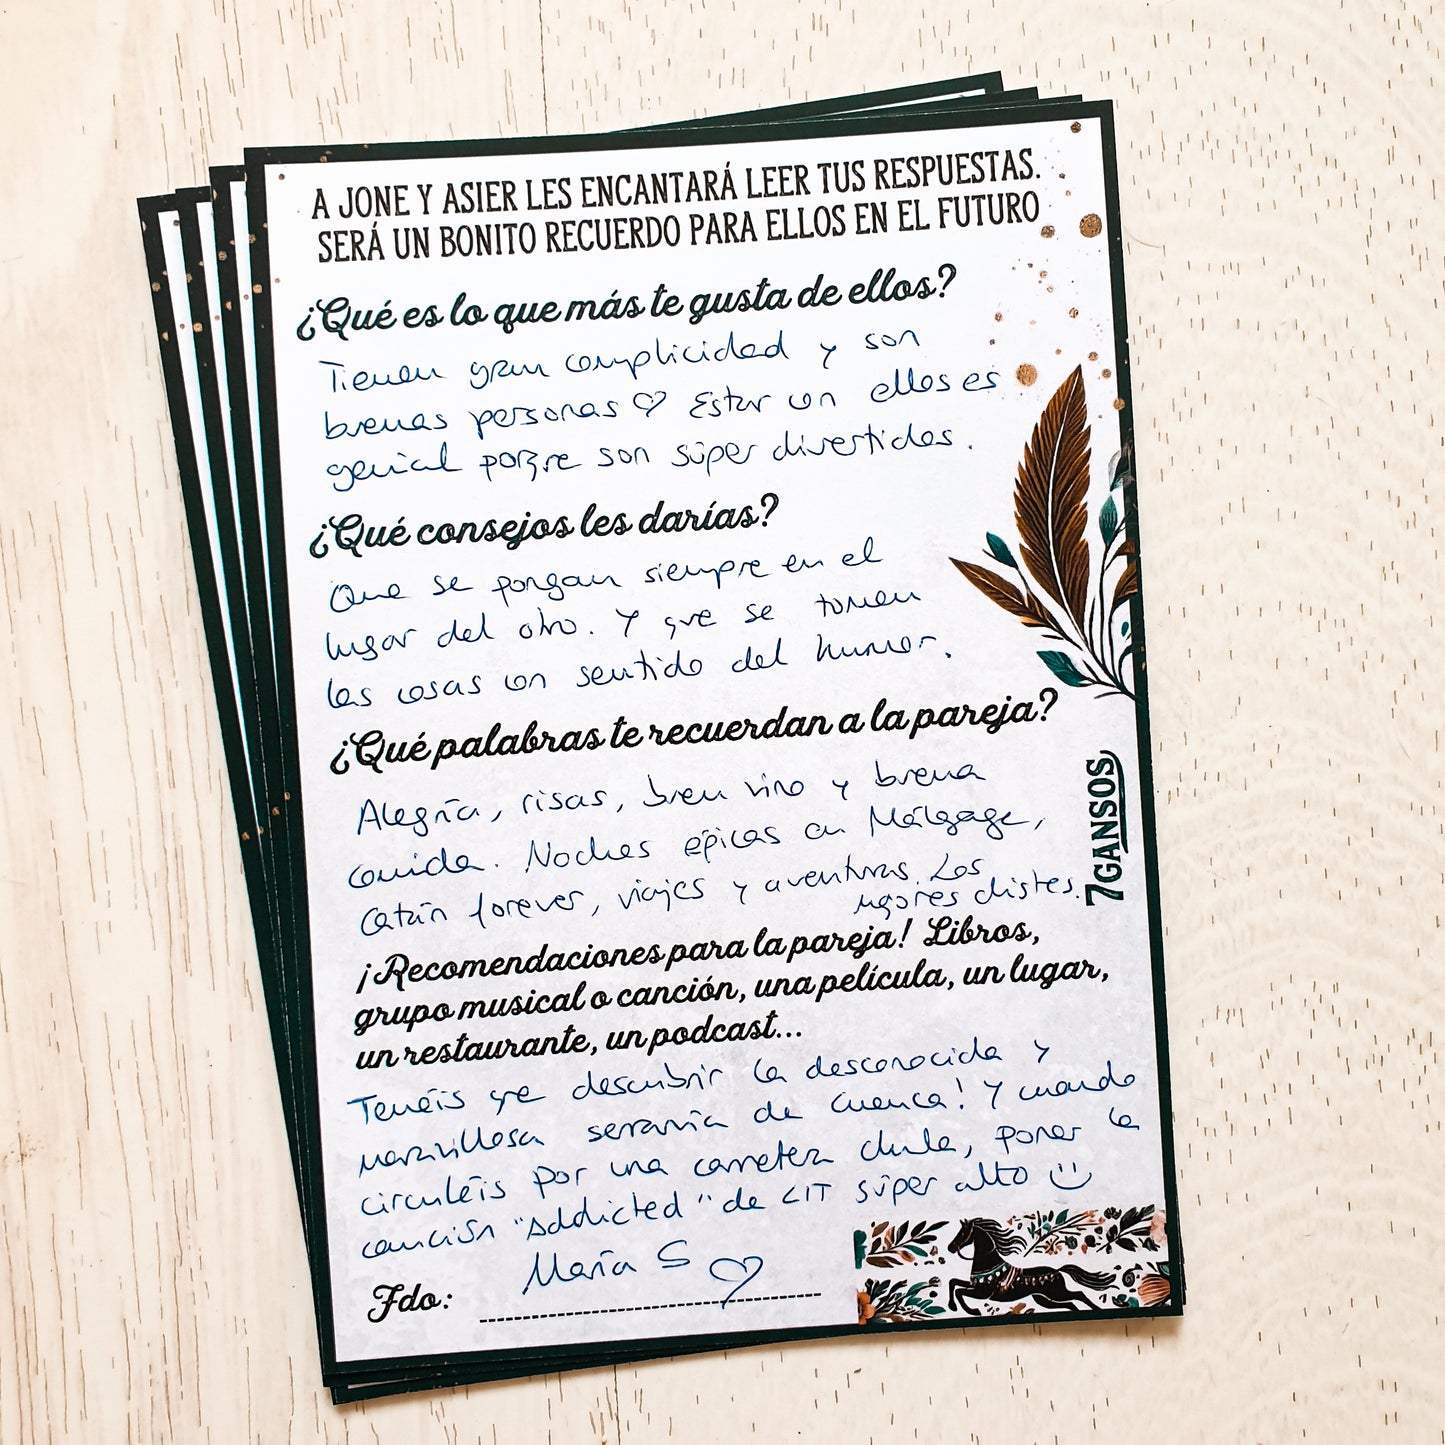 A JONE Y ASIER LES ENCANTARÁ LEER TUS RESPUESTAS.
SERÁ UN BONITO RECUERDO PARA ELLOS EN EL FUTURO
¿Qué es lo que más te gusta de ellos?
Tienen gran complicidad y son
buenas personas ♡ Estar con ellos es
genial porque son súper divertidos.
¿Qué consejos les darías?
Que se pongan siempre en el
lugar del otro. Y que se tomen
las cosas con sentido del humor.
¿Qué palabras te recuerdan a la pareja?
Alegría, risas, buen vino y buena
comida. Noches épicas en Málgage,
Catán forever, viajes y aventuras. Los
mejores chistes.
7GANSOS
¡Recomendaciones para la pareja! Libros,
grupo musical o canción, una película, un lugar,
un restaurante, un podcast...
Tenéis que descubrir la desconocida y
maravillosa serranía de Cuenca! Y cuando
circuléis por una carretera chula, poner la
canción "Addicted" de LIT súper alto :)
María S ♡
Fdo: